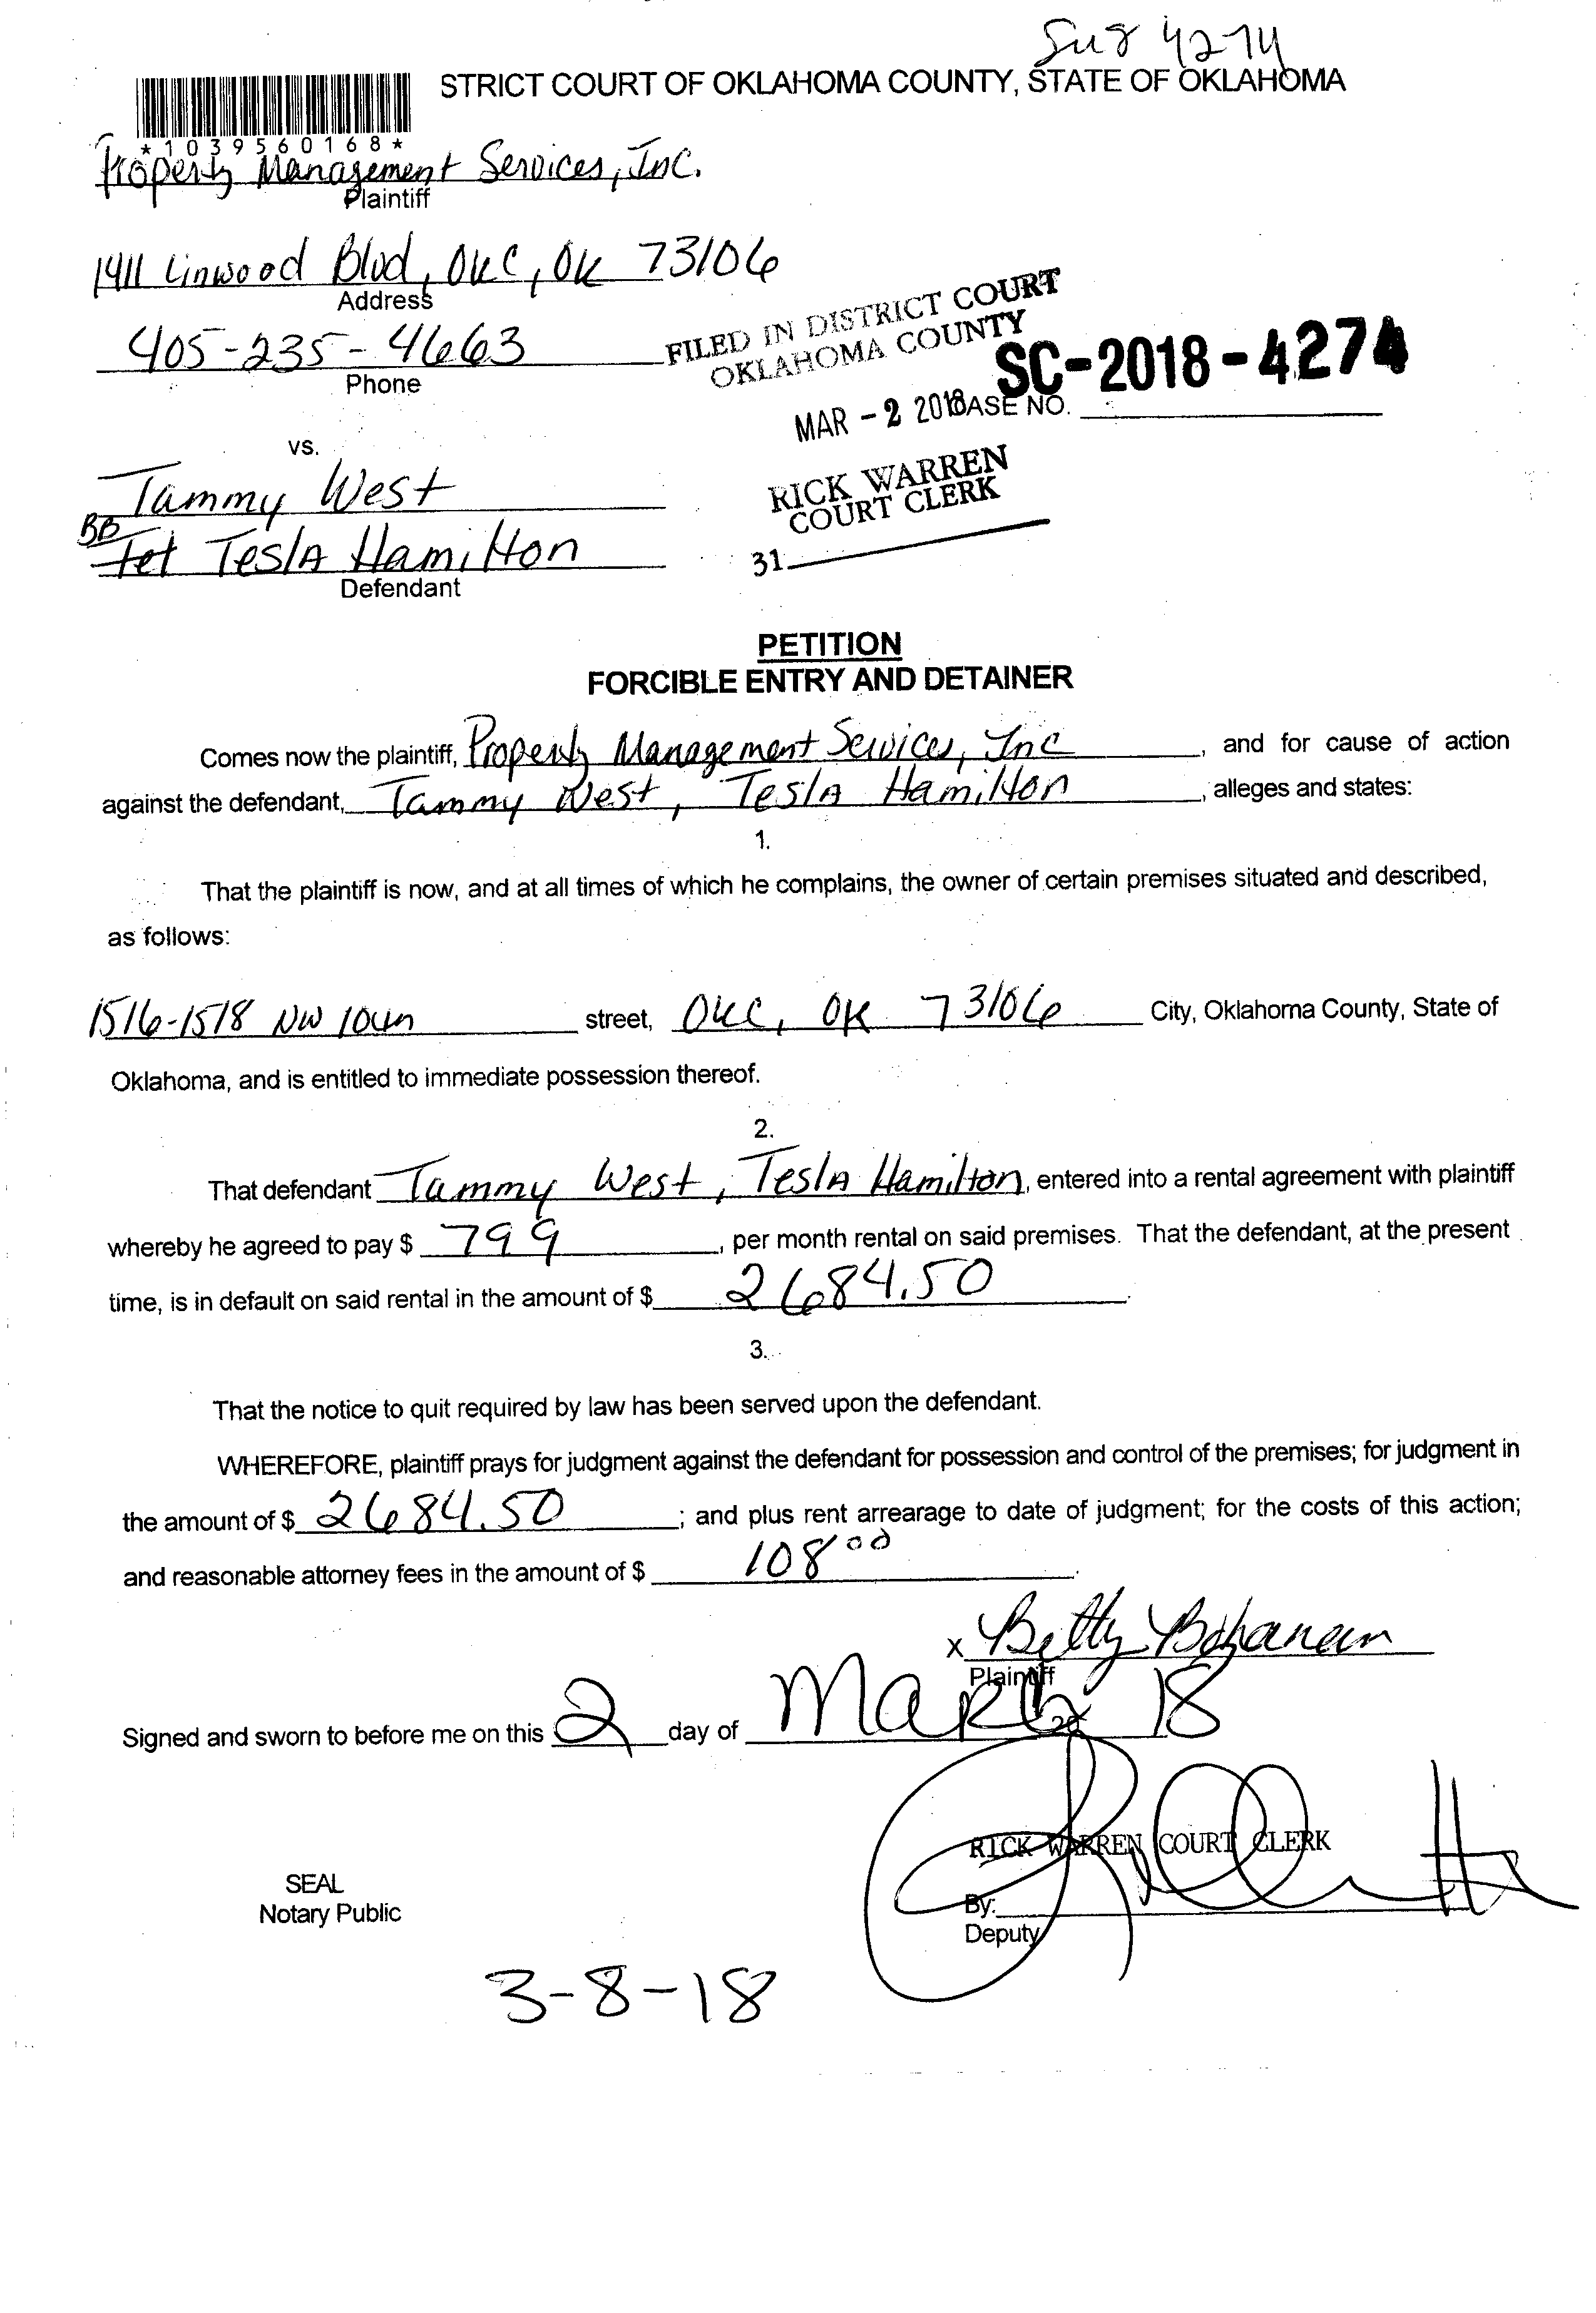 4274
STRICT COURT OF OKLAHOMA COUNTY, STATE OF OKLAHOMA
*1039560168*
Property Management Services, Inc.
Plaintiff
1411 Linwood Blvd, OKC, OK 73106
Address
405-235-4663
Phone
FILED IN DISTRICT COURT
OKLAHOMA COUNTY
SC-2018-4274
MAR - 2 2018
CASE NO.
vs.
RICK WARREN
COURT CLERK
31
Tammy West
BB
Tesla Hamilton
Defendant
PETITION
FORCIBLE ENTRY AND DETAINER
Comes now the plaintiff, Property Management Services, Inc , and for cause of action
against the defendant, Tammy West, Tesla Hamilton , alleges and states:
1.
That the plaintiff is now, and at all times of which he complains, the owner of certain premises situated and described,
as follows:
1516-1518 NW 10th street, OKC, OK 73106 City, Oklahoma County, State of
Oklahoma, and is entitled to immediate possession thereof.
2.
That defendant Tammy West, Tesla Hamilton, entered into a rental agreement with plaintiff
whereby he agreed to pay $ 799 , per month rental on said premises. That the defendant, at the present
time, is in default on said rental in the amount of $ 2684.50 .
3.
That the notice to quit required by law has been served upon the defendant.
WHEREFORE, plaintiff prays for judgment against the defendant for possession and control of the premises; for judgment in
the amount of $ 2684.50 ; and plus rent arrearage to date of judgment; for the costs of this action;
and reasonable attorney fees in the amount of $ 108 00 .
x Betty Bohanan
Plaintiff
Signed and sworn to before me on this 2 day of March 20 18
RICK WARREN COURT CLERK
SEAL
Notary Public
By:
Deputy
3-8-18